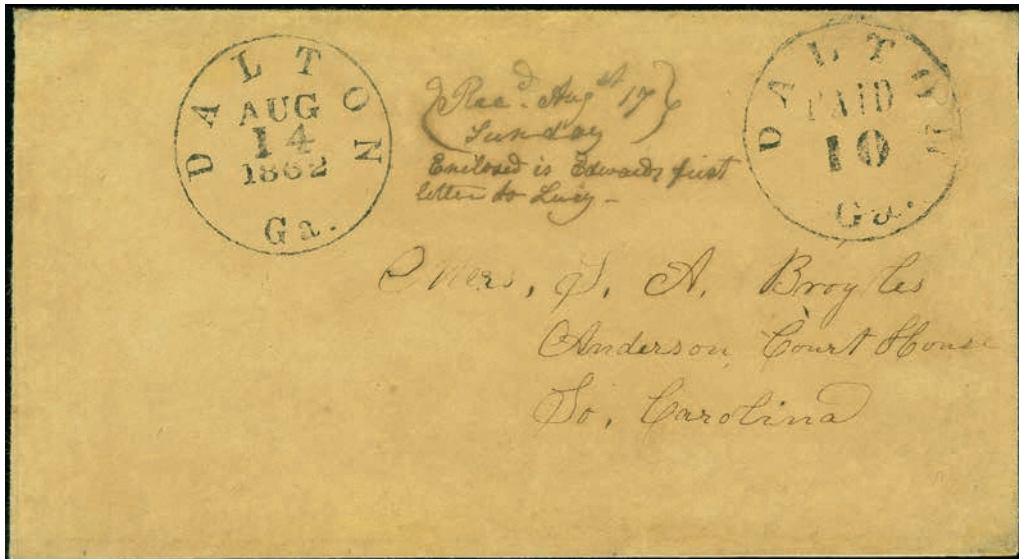 DALTON
AUG
14
1862
Ga.
Rec.d Aug st 17
Sunday
Enclosed is Edwards first
letter to Lucy -
DALTON
PAID
10
Ga.
Mrs, S. A. Broyles
Anderson Court House
So, Carolina